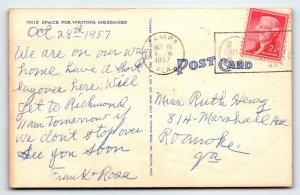 THIS SPACE FOR WRITING MESSAGES
Oct. 28th 1957
We are on our way
home have a short
layover here. Will
get to Richmond
11am tomorrow if
we don't stop over
See you soon
Frank & Rosa
TAMPA
OCT 28
PM
1957
FLA.
POST CARD
2¢
Miss Ruth Henry
814 - Marshall Ave
Roanoke
Va